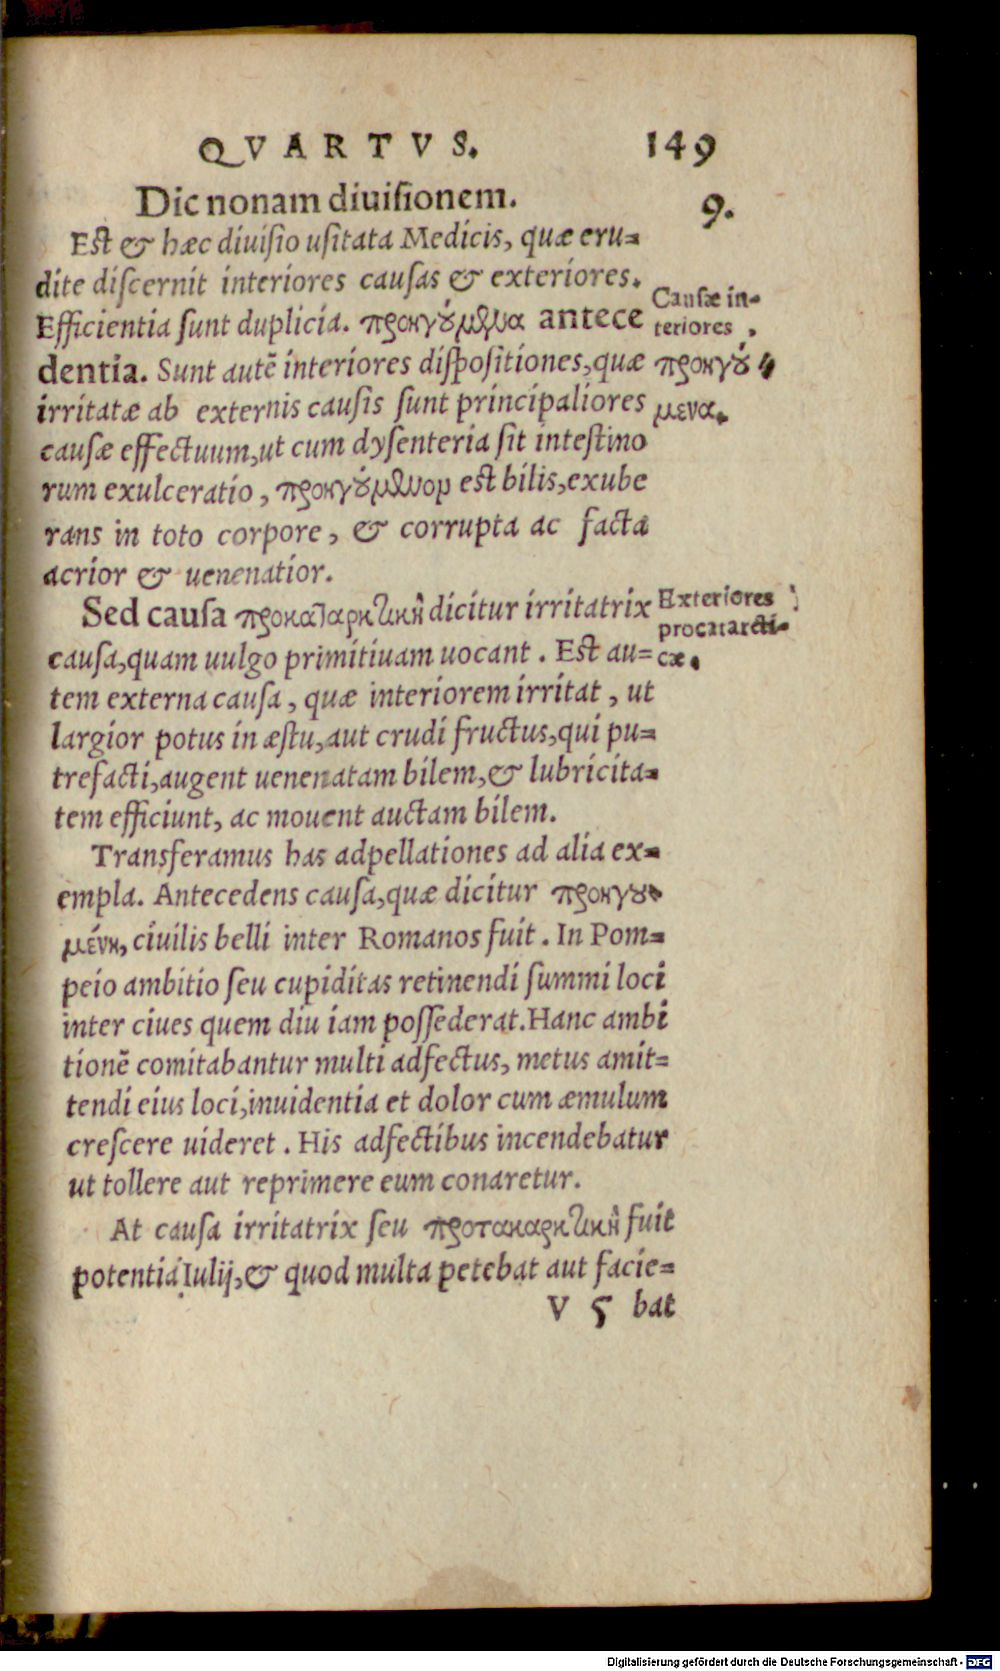 QVARTVS. 149
Dic nonam diuisionem. 9.
Est & hæc diuisio usitata Medicis, quæ eru=
dite discernit interiores causas & exteriores.
Efficientia sunt duplicia. προηγούμενα antece
dentia. Sunt autẽ interiores dispositiones, quæ
irritatæ ab externis causis sunt principaliores
causæ effectuum, ut cum dysenteria sit intestino
rum exulceratio, προηγούμενον est bilis, exube
rans in toto corpore, & corrupta ac facta
acrior & uenenatior.
Causæ in=
teriores,
προηγού=
μενα.
Sed causa προκαταρκτικὴ dicitur irritatrix
causa, quam uulgo primitiuam uocant. Est au=
tem externa causa, quæ interiorem irritat, ut
largior potus in æstu, aut crudi fructus, qui pu=
trefacti, augent uenenatam bilem, & lubricita=
tem efficiunt, ac mouent auctam bilem.
Exteriores
procatarcti=
cæ.
Transferamus has adpellationes ad alia ex=
empla. Antecedens causa, quæ dicitur προηγου=
μένη, ciuilis belli inter Romanos fuit. In Pom=
peio ambitio seu cupiditas retinendi summi loci
inter ciues quem diu iam possederat. Hanc ambi
tionẽ comitabantur multi adfectus, metus amit=
tendi eius loci, inuidentia et dolor cum æmulum
crescere uideret. His adfectibus incendebatur
ut tollere aut reprimere eum conaretur.
At causa irritatrix seu προτακαρκτικὴ fuit
potentia Iulij, & quod multa petebat aut facie=
V 5 bat
Digitalisierung gefördert durch die Deutsche Forschungsgemeinschaft - DFG